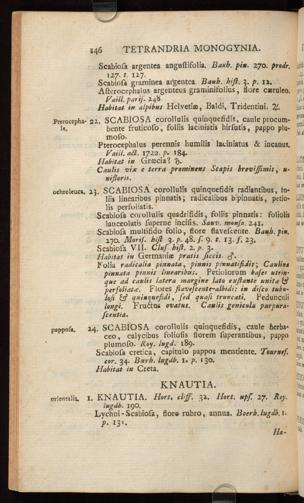 146 TETRANDRIA MONOGYNIA.
Scabiosa argentea angustifolia. Bauh. pin. 270. prodr.
127. t. 127.
Scabiosa graminea argentea Bauh. hist. 3. p. 12.
Asterocephalus argenteus graminifolius, flore cæruleo.
Vaill. paris. 248
Habitat in alpibus Helvetiæ, Baldi, Tridentini. ♃.
Pterocepha- 22. SCABIOSA corollulis quinquefidis, caule procum-
la. bente fruticoso, foliis laciniatis hirsutis, pappo plu-
moso.
Pterocephalus perennis humilis laciniatus & incanus.
Vaill. act. 1722. p. 184.
Habitat in Græcia? ♄.
Caulis vix e terra prominens Scapis brevissimis, u-
nifloris.
ochroleuca. 23. SCABIOSA corollulis quinquefidis radiantibus, fo-
liis linearibus pinnatis; radicalibus bipinnatis, petio-
lis perfoliatis.
Scabiosa corollulis quadrifidis, foliis pinnatis: foliolis
lanceolatis superne incisis. Sauv. monsp. 241.
Scabiosa multifido folio, flore flavescente. Bauh. pin.
270. Moris. hist 3. p. 48. s. 9. t. 13. f. 23.
Scabiosa VII. Clus. hist. 2. p. 3.
Habitat in Germaniæ pratis siccis. ♂.
Folia radicalia pinnata, pinnis pinnatifidis; Caulina
pinnata pinnis linearibus. Petiolorum bases utrin-
que ad caulis latera margine lato rufsante unita &
perfoliata. Flores flavescente-albidi: in disco tubu-
losi & quinquefidi, sed quasi truncati. Pedunculi
longi. Fructus ovatus. Caulis genicula purpura-
scentia.
papposa. 24. SCABIOSA corollulis quinquefidis, caule herba-
ceo, calycibus foliosis florem superantibus, pappo
plumoso. Roy. lugd. 189.
Scabiosa cretica, capitulo pappos mentiente. Tournef.
cor. 34. Burh. lugdb. 1. p. 130.
Habitat in Creta.
KNAUTIA.
orientalis. 1. KNAUTIA. Hort. cliff. 32. Hort. ups. 27. Roy.
lugdb. 190.
Lychni-Scabiosa, flore rubro, annua. Boerh. lugdb. 1.
p. 131.
Ha-